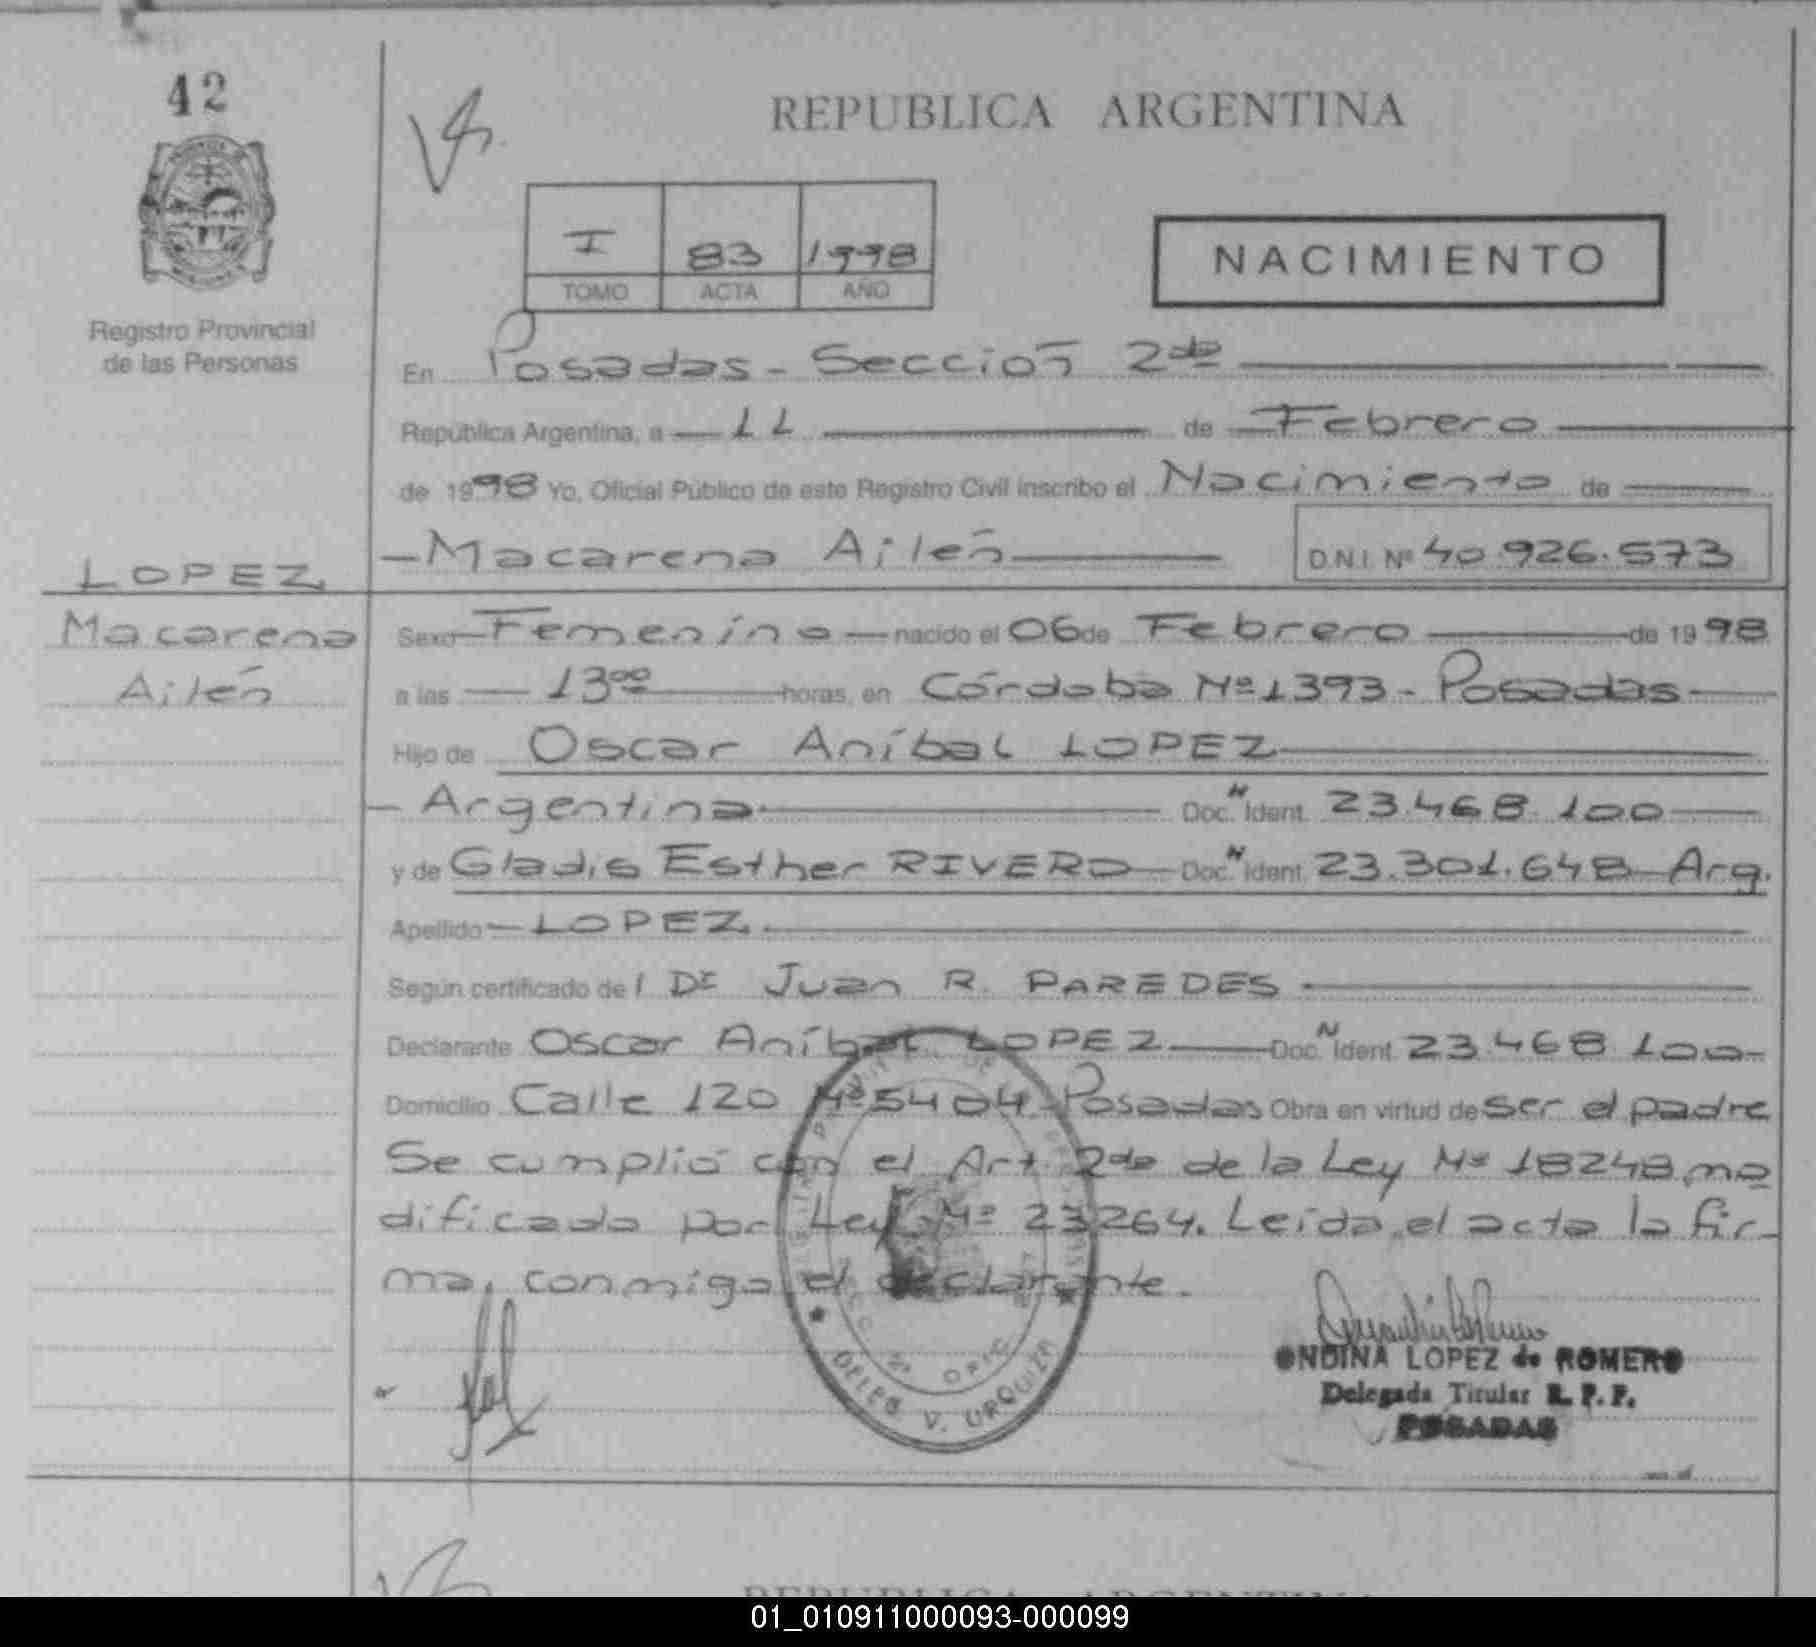 42
REPUBLICA ARGENTINA
I 83 1998
TOMO ACTA AÑO
NACIMIENTO
Registro Provincial
de las Personas
En Posadas - Sección 2da
República Argentina, a 11 de Febrero
de 1998 Yo, Oficial Público de este Registro Civil inscribo el Nacimiento de
Macarena Ailén D.N.I. Nº 40.926.573
LOPEZ
Macarena
Ailén
Sexo Femenino nacido el 06 de Febrero de 1998
a las 13 00 horas, en Córdoba Nº 1393 - Posadas
Hijo de Oscar Aníbal LOPEZ
Argentina Doc. N Ident. 23.468.100
y de Gladis Esther RIVERO Doc. N Ident. 23.301.648 Arg.
Apellido LOPEZ
Según certificado del Dr Juan R. PAREDES
Declarante Oscar Aníbal LOPEZ Doc. N Ident. 23.468.100
Domicilio Calle 120 Nº 5404 Posadas Obra en virtud de ser el padre
Se cumplió con el Art. 2do de la Ley Nº 18248, mo
dificado por Ley Nº 23264. Leída el acta la fir-
ma, conmigo el declarante.
DELEG V. URQUIZA
ONDINA LOPEZ de ROMERO
Delegada Titular R. P. P.
POSADAS
REPUBLICA ARGENTINA
01_010911000093-000099